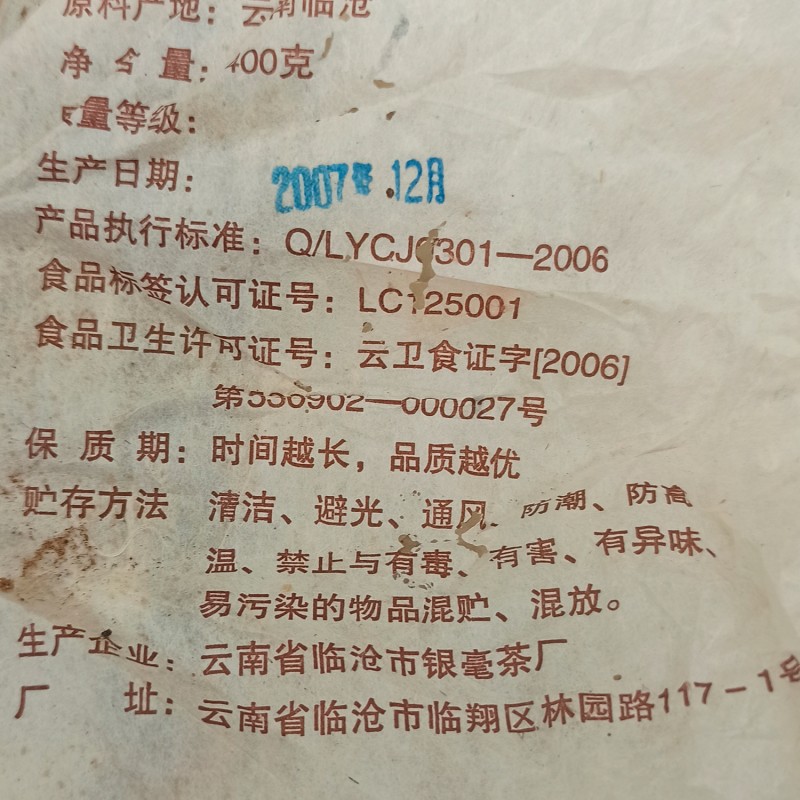 原料产地：云南临沧
净含量：400克
质量等级：
生产日期：2007年.12月
产品执行标准：Q/LYCJ0301—2006
食品标签认可证号：LC125001
食品卫生许可证号：云卫食证字[2006]
第530902—000027号
保质期：时间越长，品质越优
贮存方法 清洁、避光、通风、防潮、防高
温、禁止与有毒、有害、有异味、
易污染的物品混贮、混放。
生产企业：云南省临沧市银毫茶厂
厂址：云南省临沧市临翔区林园路117－1号